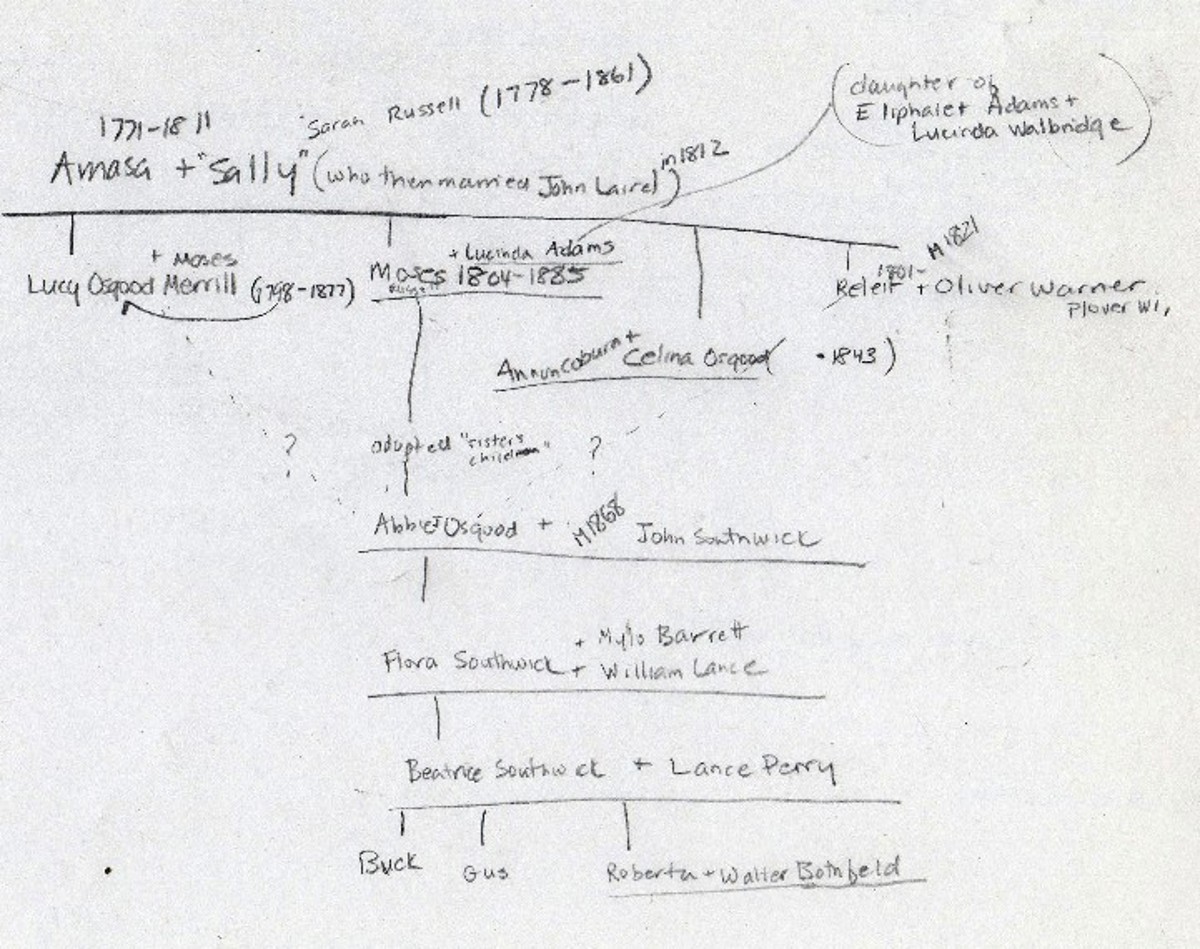 1771-1811
"Sarah Russell (1778-1861)
(daughter of
Eliphalet Adams +
Lucinda Walbridge)
Amasa + "Sally" (who then married John Laird) in 1812
+ Moses
Lucy Osgood Merrill (1798-1877)
+ Lucinda Adams
Moses 1804-1885
M 1821
1801-
Releif + Oliver Warner
Plover WI,
+ Celina Osgood ( • 1843)
?
adopted "sisters
children"
?
Abbie Osgood + M1868 John Southwick
+ Mylo Barrett
Flora Southwick + William Lance
Beatrice Southwick + Lance Perry
Buck
Gus
Roberta + Walter Bothfeld